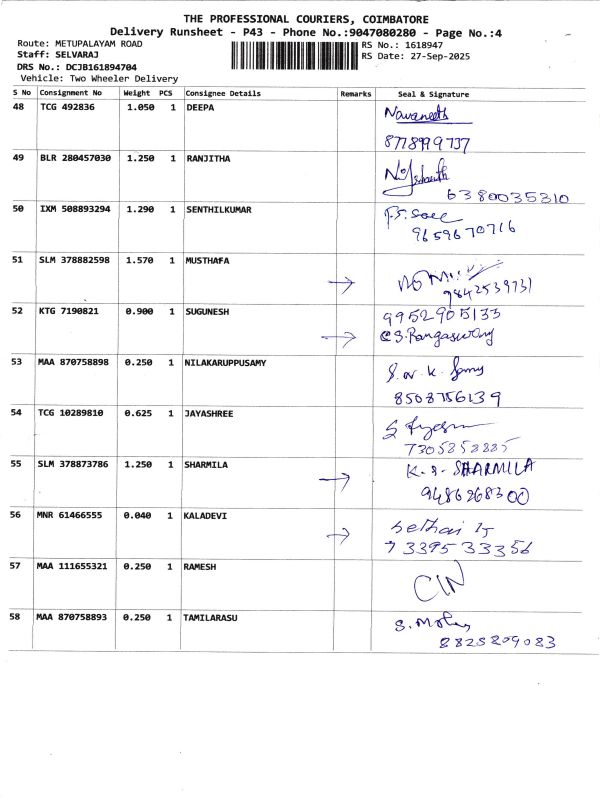 THE PROFESSIONAL COURIERS, COIMBATORE
Delivery Runsheet - P43 - Phone No.:9047080280 - Page No.:4
Route: METUPALAYAM ROAD
RS No.: 1618947
Staff: SELVARAJ
RS Date: 27-Sep-2025
DRS No.: DCJB161894704
Vehicle: Two Wheeler Delivery
S No Consignment No Weight PCS Consignee Details Remarks Seal & Signature
48 TCG 492836 1.050 1 DEEPA Navaneeth
8778999737
49 BLR 280457030 1.250 1 RANJITHA
6380035310
50 IXM 508893294 1.290 1 SENTHILKUMAR
9659670716
51 SLM 378882598 1.570 1 MUSTHAFA
9842539731
52 KTG 7190821 0.900 1 SUGUNESH 9952905133
53 MAA 870758898 0.250 1 NILAKARUPPUSAMY
8508756139
54 TCG 10289810 0.625 1 JAYASHREE
55 SLM 378873786 1.250 1 SHARMILA K.S. SHARMILA
9486268300
56 MNR 61466555 0.040 1 KALADEVI
7339533356
57 MAA 111655321 0.250 1 RAMESH
58 MAA 870758893 0.250 1 TAMILARASU
8825209083